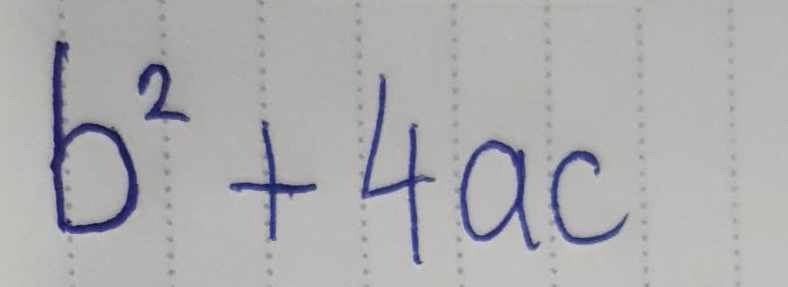 b² + 4ac